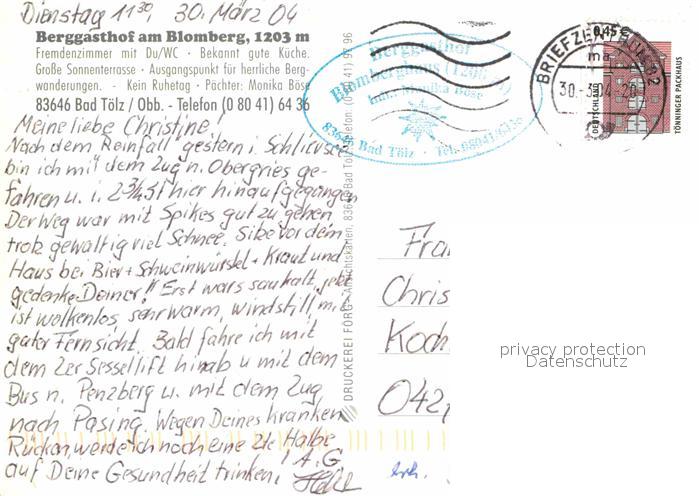 Dienstag 11³⁰, 30. März 04
Berggasthof am Blomberg, 1203 m
Fremdenzimmer mit Du/WC · Bekannt gute Küche.
Große Sonnenterrasse · Ausgangspunkt für herrliche Berg-
wanderungen. - Kein Ruhetag · Pächter: Monika Böse
83646 Bad Tölz / Obb. - Telefon (0 80 41) 64 36
Meine liebe Christine!
Nach dem Reinfall gestern i. Schliersee
bin ich mit dem Zug n. Obergries ge-
fahren u. i. 2¾ St hier hinaufgegangen
Der Weg war mit Spikes gut zu gehen
trotz gewaltig viel Schnee. Sitze vor dem
Haus bei Bier + Schweinwürstel + Kraut und
gedenke Deiner!! Erst wars saukalt, jetzt
ist wolkenlos, sehr warm, windstill, mit
guter Fernsicht. Bald fahre ich mit
dem 2er Sessellift hinab u mit dem
Bus n. Penzberg u. mit dem Zug
nach Pasing. Wegen Deines kranken
Rücken, werde ich noch eine 2te Halbe
auf Deine Gesundheit trinken! A. G.
DRUCKEREI FÖRG · Ansichtskarten, 83646 Bad Tölz, Telefon: (0 80 41) 92 96
Berggasthof
Blomberghaus (1203 m)
Inh. Monika Böse
83646 Bad Tölz · Tel. 08041/6436
BRIEFZENTRUM 82
30.-3.04-20
ma
0,45€
DEUTSCHLAND
TÖNNINGER PACKHAUS
Fra
Chris
Koch
042
privacy protection
Datenschutz